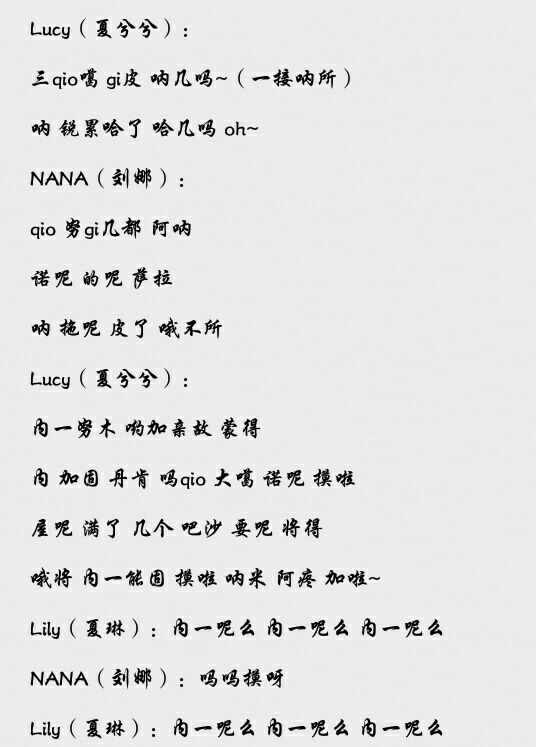 Lucy（夏兮兮）：
三qio噶 gi皮 呐几吗~（一接呐所）
呐 锐累哈了 哈几吗 oh~
NANA（刘娜）：
qio 穷gi几都 阿呐
诺呢 的呢 萨拉
呐 拖呢 皮了 哦不所
Lucy（夏兮兮）：
内一穷木 哟加亲故 蒙得
内 加固 丹肯 吗qio 大噶 诺呢 摸啦
屋呢 满了 几个 吧沙 要呢 将得
哦将 内一能固 摸啦 呐米 阿疼 加啦~
Lily（夏琳）：内一呢么 内一呢么 内一呢么
NANA（刘娜）：吗吗摸呀
Lily（夏琳）：内一呢么 内一呢么 内一呢么